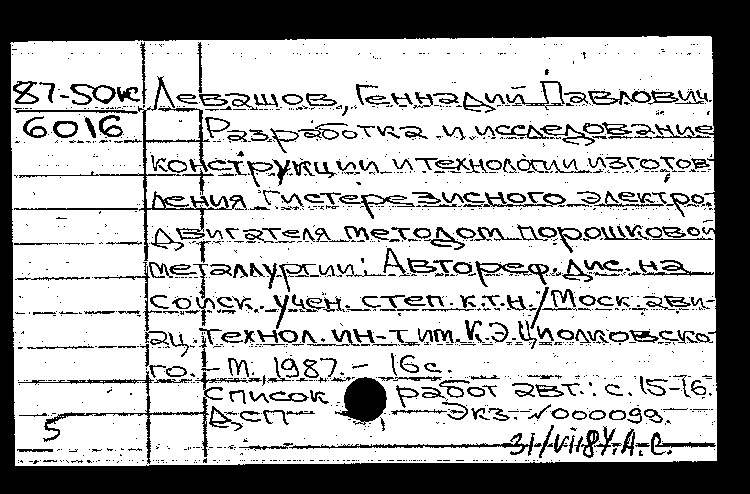 87-50к Левашов, Геннадий Павлович
6016 Разработка и исследование
конструкции и технологии изготов-
ления гистерезисного электро-
двигателя методом порошковой
металлургии: Автореф. дис. на
соиск. учен. степ. к.т.н. / Моск. ави-
ац. технол. ин-т им. К.Э. Циолковско-
го. - М., 1987. - 16 с.
Список работ авт.: с. 15-16.
ДСП Экз. №000099.
5
31/VII 87. А. С.